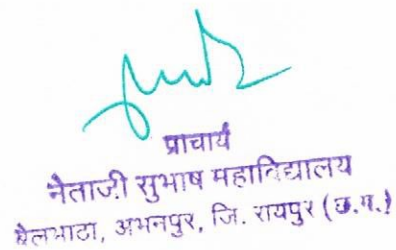 प्राचार्य
नेताजी सुभाष महाविद्यालय
बेलभाठा, अभनपुर, जि. रायपुर (छ.ग.)